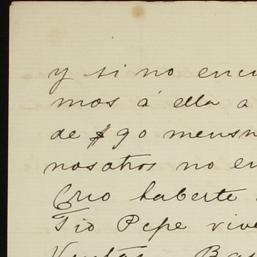 y si no encu
mos á ella a
de $90 mensu
nosotros no en
Creo haberte
Tio Pepe vive